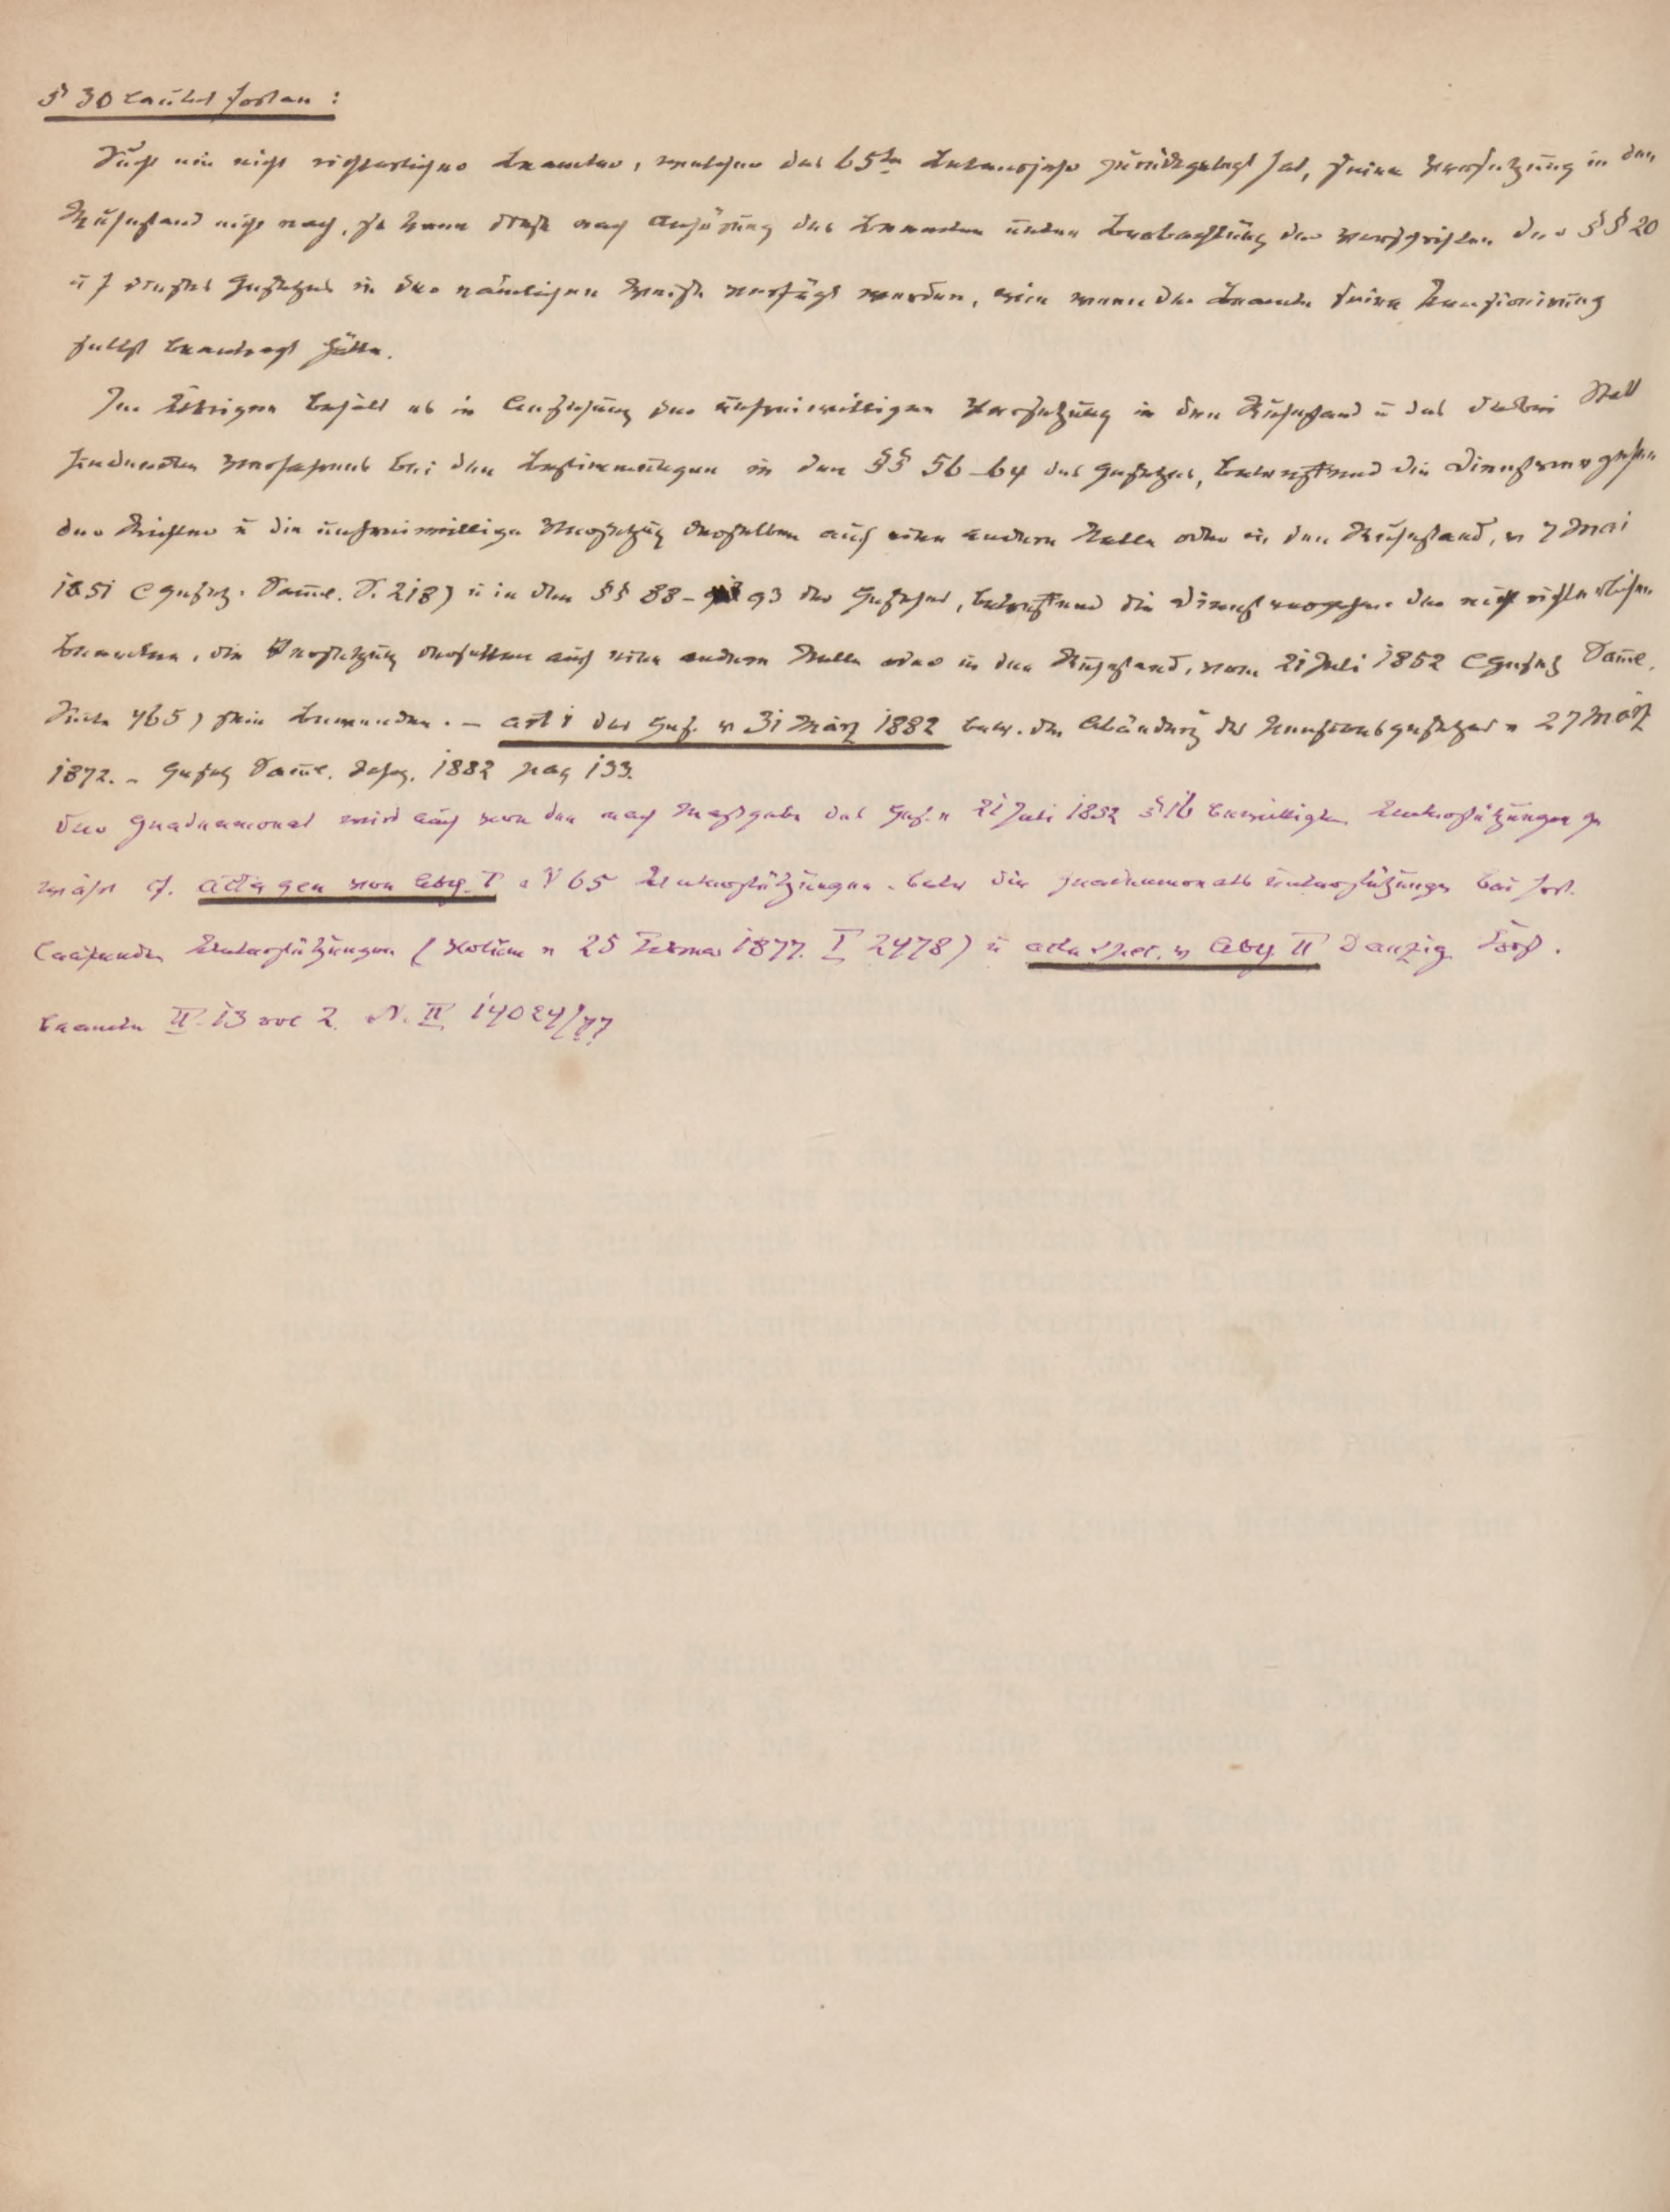 § 30 lautet fortan:
Sucht ein nicht richterlicher Beamter, welcher das 65te Lebensjahr zurückgelegt hat, seine Versetzung in den
Ruhestand nicht nach, so kann diese nach Anhörung des Beamten unter Beobachtung der Vorschriften der §§ 20
u f dieses Gesetzes in der nämlichen Weise verfügt werden, wie wenn der Beamte seine Pensionirung
selbst beantragt hätte.
Im Übrigen behält es in Ansehung der unfreiwilligen Versetzung in den Ruhestand u des dabei Statt
findenden Verfahrens bei den Bestimmungen in den §§ 56–64 des Gesetzes, betreffend die Dienstvergehen
der Richter u die unfreiwillige Versetzg derselben auf eine andere Stelle oder in den Ruhestand, v 7 Mai
1851 (Gesetz. Samml. S. 218) u in den §§ 88–93 des Gesetzes, betreffend die Dienstvergehen der nicht richterlichen
Beamten, die Versetzung derselben auf eine andere Stelle oder in den Ruhestand, vom 21 Juli 1852 (Gesetz Saml.
Seite 465) sein Bewenden. – Art 1 des Ges. v 31 März 1882 betr. die Abänderg des Pensionsgesetzes v 27 März
1872. – Gesetz Saml. 1882 pag 133.
Der Gnadenmonat wird auch von den nach Maßgabe des Ges. v 21 Juli 1852 § 16 bewilligten Unterstützungen ge
währt cf. acta gen von Abtg. I 65 Unterstützungen. betr die gnadenmonats unterstützungen bei fort.
laufenden Unterstützungen (Notium v 25 Februar 1877. I 2478) u acta spec. v Abtg II Danzig Forst.
beamte II. 13 vol 2. N. II 14024/77